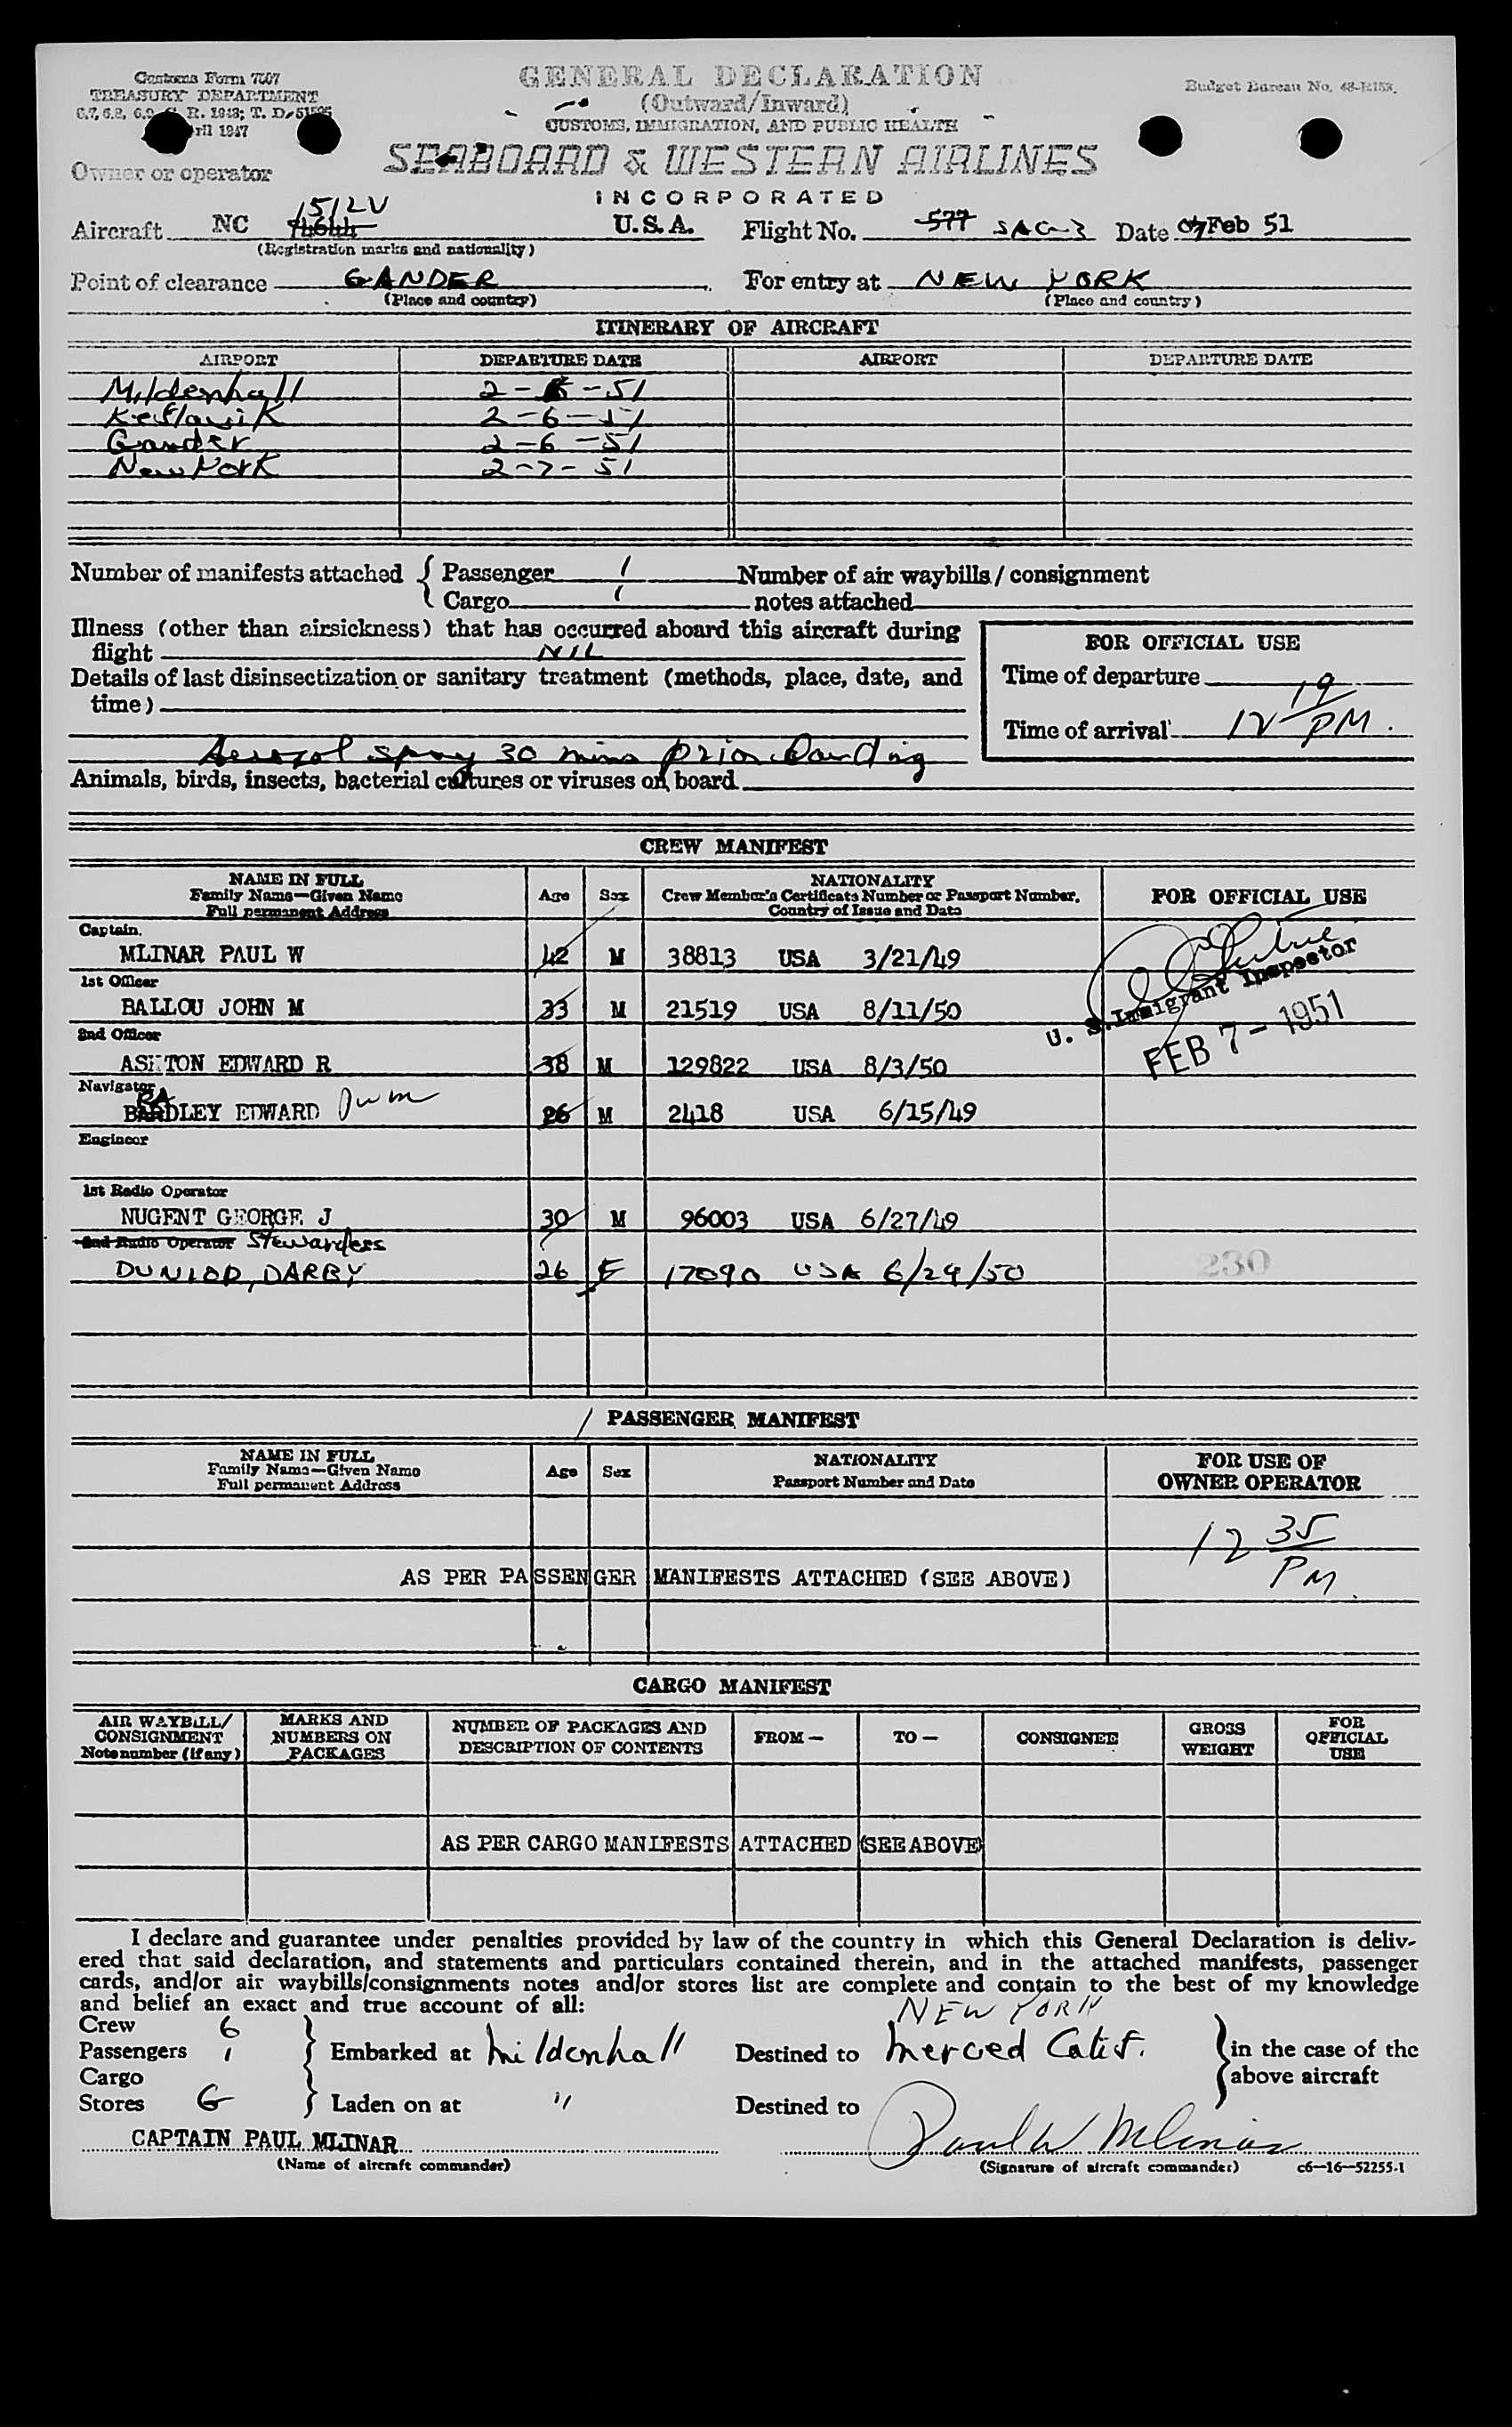 Customs Form 7507
TREASURY DEPARTMENT
GENERAL DECLARATION
(Outward/Inward)
CUSTOMS, IMMIGRATION, AND PUBLIC HEALTH
Budget Bureau No.
Owner or operator
SEABOARD & WESTERN AIRLINES
INCORPORATED
Aircraft NC 1512V U.S.A. Flight No. 577 SAC-3 Date 07 Feb 51
(Registration marks and nationality)
Point of clearance GANDER For entry at NEW YORK
(Place and country) (Place and country)
ITINERARY OF AIRCRAFT
AIRPORT DEPARTURE DATE AIRPORT DEPARTURE DATE
Mildenhall 2- -51
Keflavik 2-6-51
Gander 2-6-51
New York 2-7-51
Number of manifests attached { Passenger 1 Number of air waybills/consignment
Cargo 1 notes attached
Illness (other than airsickness) that has occurred aboard this aircraft during
flight NIL
Details of last disinsectization or sanitary treatment (methods, place, date, and
time)
Aerosol spray 30 mins prior landing
FOR OFFICIAL USE
Time of departure
Time of arrival 12 19 PM.
Animals, birds, insects, bacterial cultures or viruses on board
CREW MANIFEST
NAME IN FULL
Family Name—Given Name
Full permanent Address
Age Sex
NATIONALITY
Crew Member's Certificate Number or Passport Number,
Country of Issue and Date
FOR OFFICIAL USE
Captain.
MLINAR PAUL W 42 M 38813 USA 3/21/49
1st Officer
BALLOU JOHN M 33 M 21519 USA 8/11/50
2nd Officer
ASHTON EDWARD R 38 M 129822 USA 8/3/50
Navigator
BRADLEY EDWARD Owm 26 M 2418 USA 6/15/49
Engineer
1st Radio Operator
NUGENT GEORGE J 30 M 96003 USA 6/27/49
2nd Radio Operator Stewardess
DUNLOP, DARBY 26 F 17090 USA 6/29/50
U. S. Immigrant Inspector
FEB 7 - 1951
230
/ PASSENGER MANIFEST
NAME IN FULL
Family Name—Given Name
Full permanent Address
Age Sex
NATIONALITY
Passport Number and Date
FOR USE OF
OWNER OPERATOR
12 35 PM
AS PER PASSENGER MANIFESTS ATTACHED (SEE ABOVE)
CARGO MANIFEST
AIR WAYBILL/
CONSIGNMENT
Note number (if any)
MARKS AND
NUMBERS ON
PACKAGES
NUMBER OF PACKAGES AND
DESCRIPTION OF CONTENTS
FROM — TO — CONSIGNEE
GROSS
WEIGHT
FOR
OFFICIAL
USE
AS PER CARGO MANIFESTS ATTACHED (SEE ABOVE)
I declare and guarantee under penalties provided by law of the country in which this General Declaration is deliv-
ered that said declaration, and statements and particulars contained therein, and in the attached manifests, passenger
cards, and/or air waybills/consignments notes and/or stores list are complete and contain to the best of my knowledge
and belief an exact and true account of all:
NEW YORK
Crew 6
Passengers 1 Embarked at Mildenhall Destined to Merced Calif. in the case of the
Cargo above aircraft
Stores G Laden on at " Destined to
CAPTAIN PAUL MLINAR Paul W Mlinar
(Name of aircraft commander) (Signature of aircraft commander) c6—16—52255-1